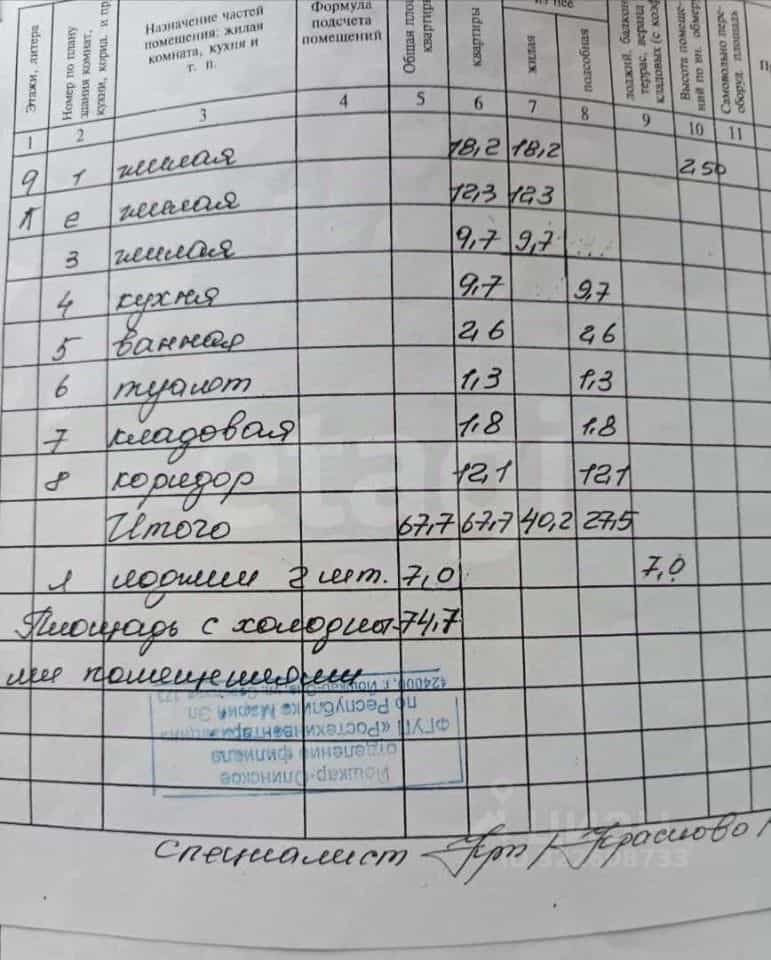 Этажи, литера
Номер по плану здания комнат, кухни, корид. и пр
Назначение частей помещения: жилая комната, кухня и т. п.
Формула подсчета помещений
Общая пло квартиры
квартиры
из нее
жилая
подсобная
лоджий, балкон террас, веранд кладовых (с коэф
Высота помеще- ний по вн. обмер
Самовольно пере- оборуд. площадь
1 2 3 4 5 6 7 8 9 10 11
9 1 жилая 18,2 18,2 2,50
2 жилая 12,3 12,3
3 жилая 9,7 9,7
4 кухня 9,7 9,7
5 ванная 2,6 2,6
6 туалет 1,3 1,3
7 кладовая 1,8 1.8
8 коридор 12,1 12,1
Итого 67,7 67,7 40,2 27,5
л лоджии 2 шт. 7,0 7,0
Площадь с холодны- 74,7
ми помещениями
424000, г. Йошкар-Ола
по Республике Марий Эл
ФГУП «Ростехинвентаризация
отделение филиала
Йошкар-Олинское
etagi
циан
Специалист